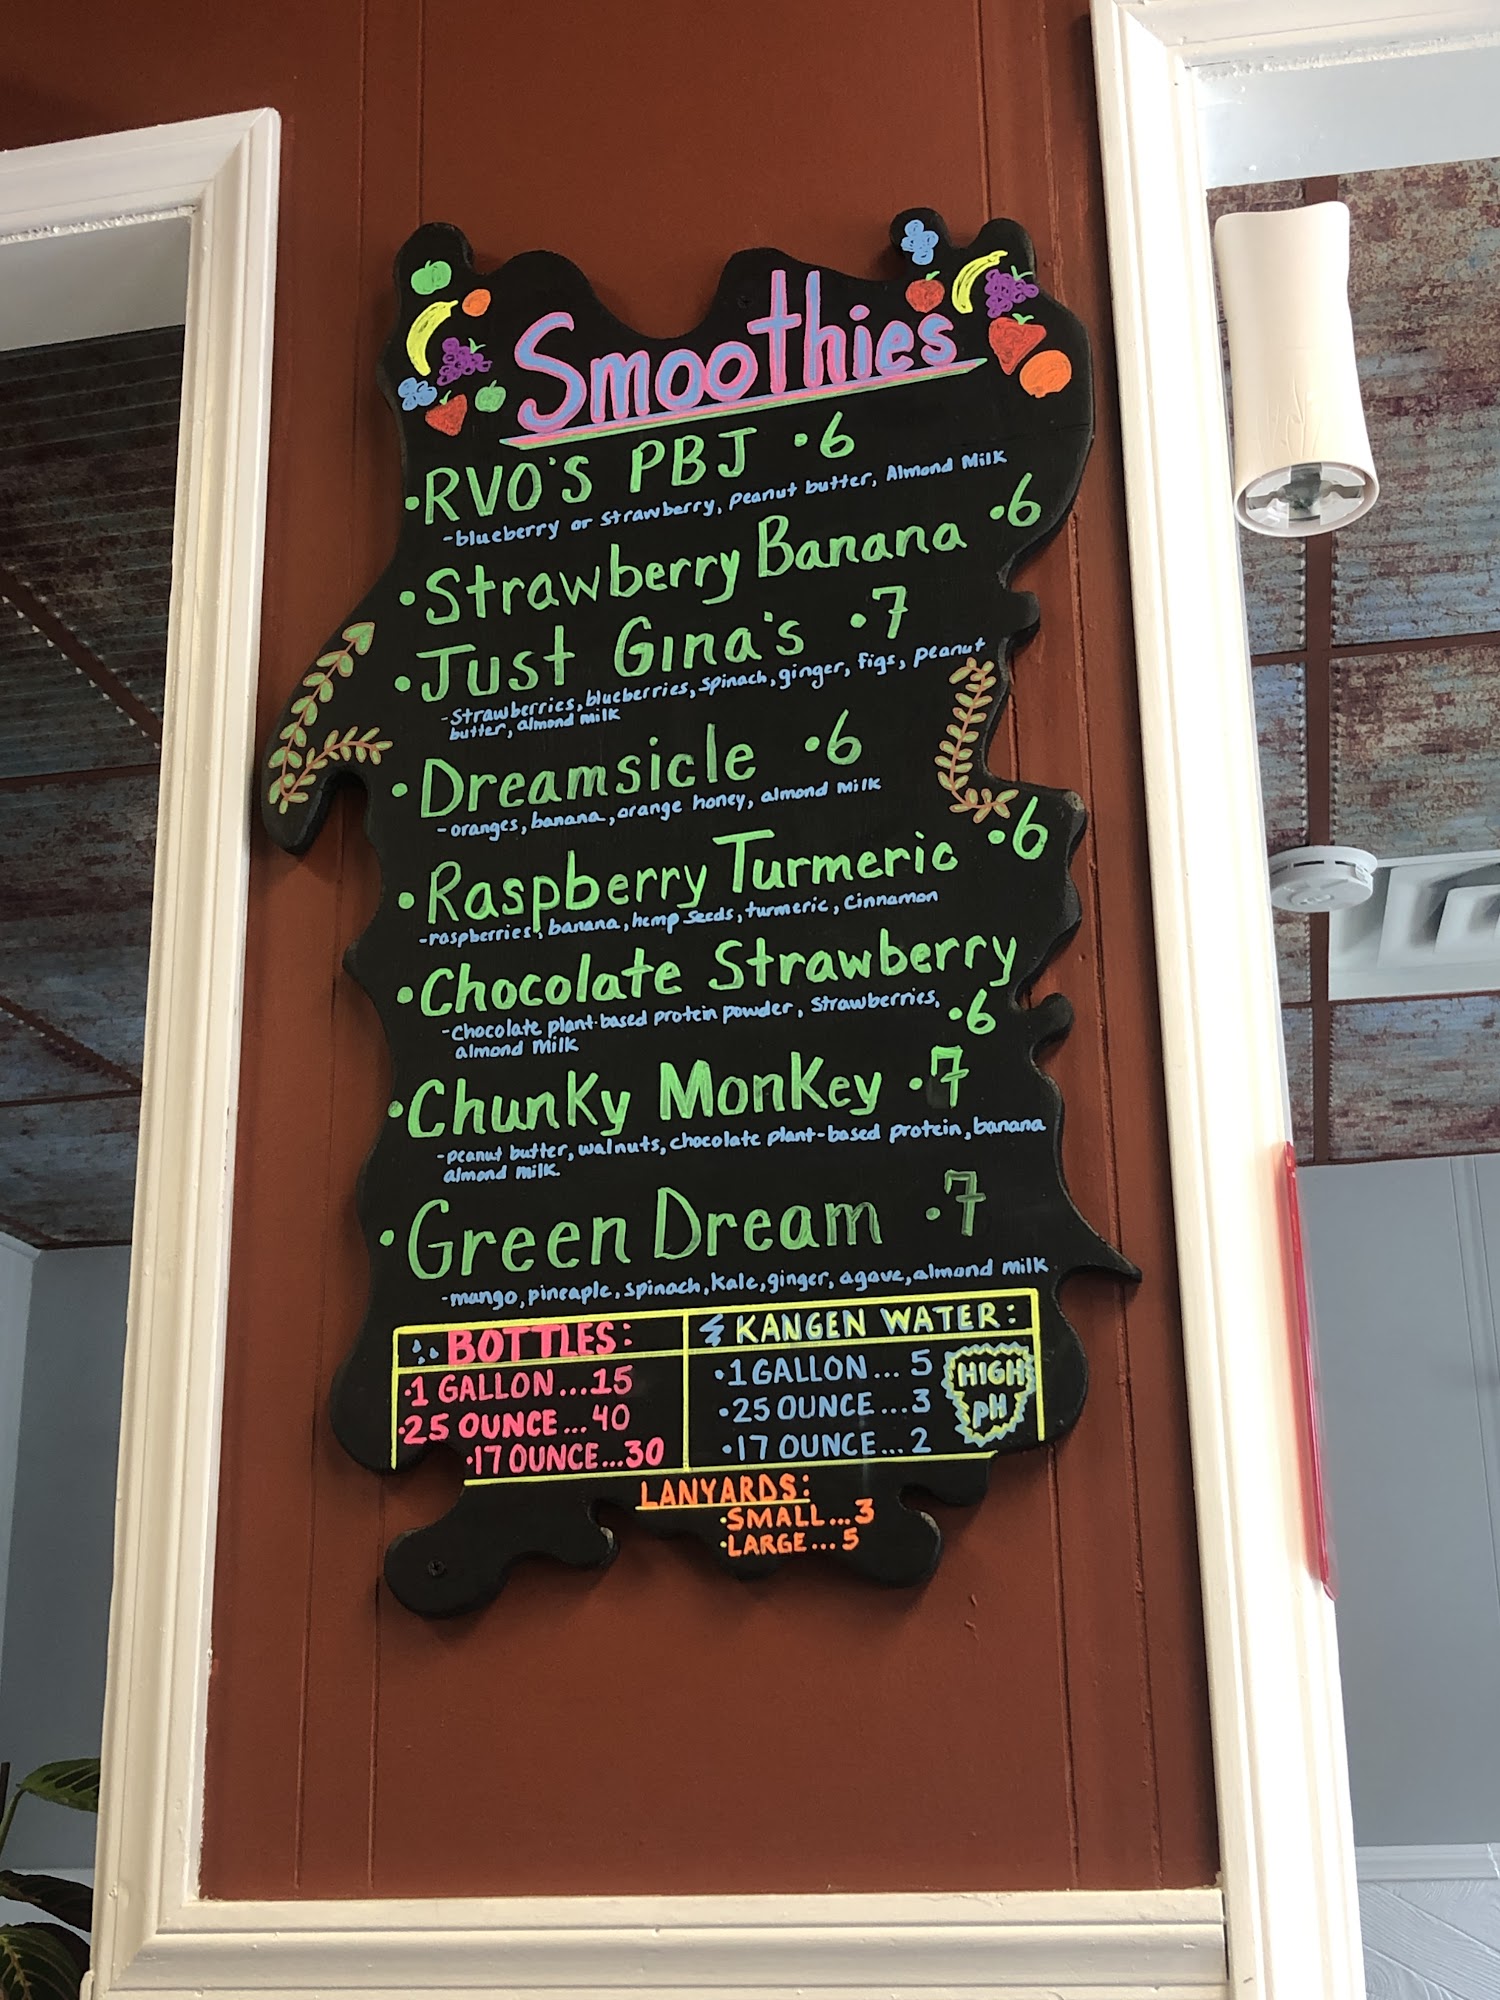 Smoothies
•RVO'S PBJ •6
-blueberry or strawberry, peanut butter, Almond Milk
•Strawberry Banana •6
•Just Gina's •7
-Strawberries, blueberries, spinach, ginger, figs, peanut
butter, almond milk
•Dreamsicle •6
-oranges, banana, orange honey, almond milk
•Raspberry Turmeric •6
-raspberries, banana, hemp seeds, turmeric, cinnamon
•Chocolate Strawberry
-Chocolate plant-based protein powder, Strawberries, •6
almond milk
•Chunky Monkey •7
-peanut butter, walnuts, chocolate plant-based protein, banana
almond milk
•Green Dream •7
-mango, pineaple, spinach, kale, ginger, agave, almond milk
BOTTLES:
•1 GALLON...15
•25 OUNCE...40
•17 OUNCE...30
KANGEN WATER:
•1 GALLON... 5
•25 OUNCE...3
•17 OUNCE...2
HIGH
pH
LANYARDS:
•SMALL...3
•LARGE...5